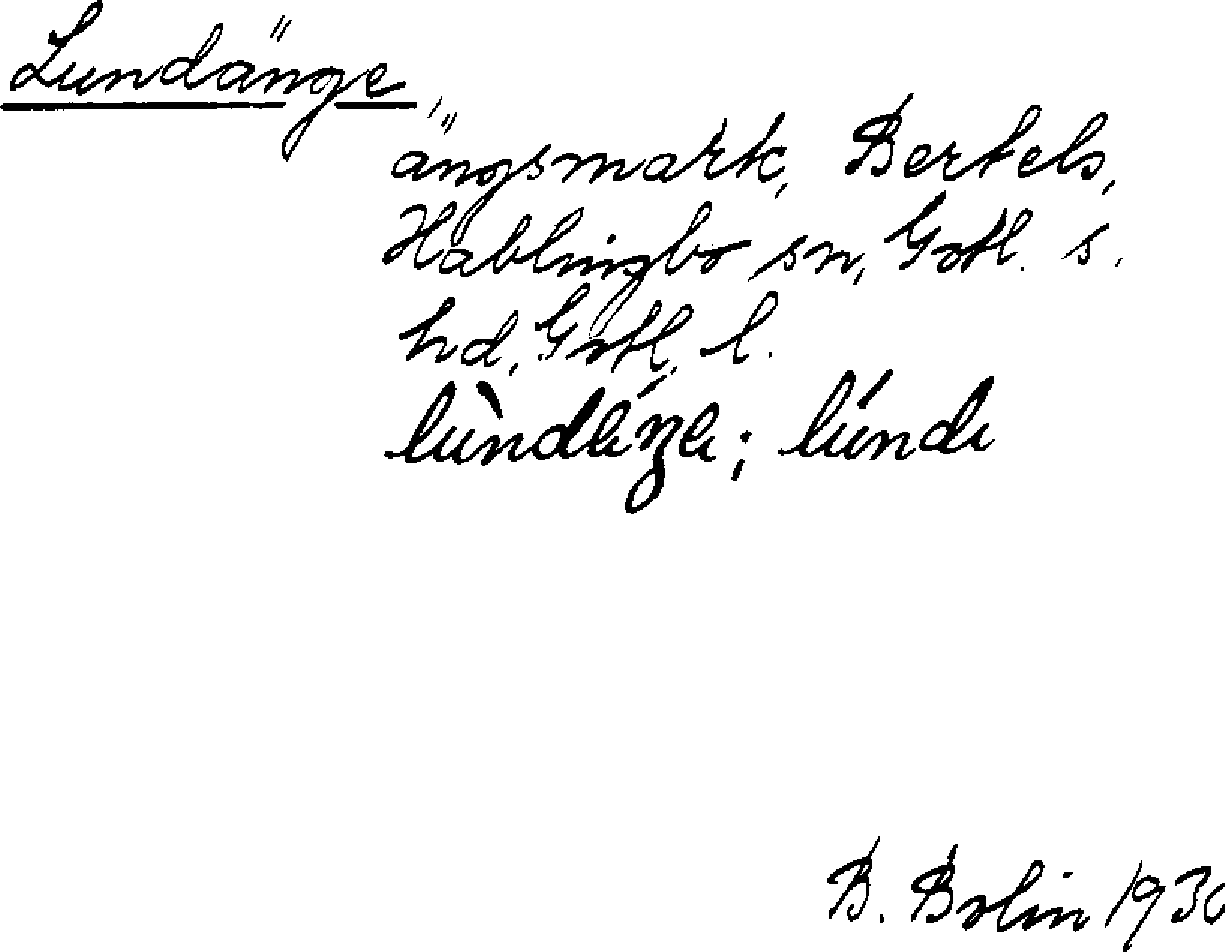 Lundänge,
ängsmark, Bertels,
Hablingbo sn, Gotl. s.
hd, Gotl. l.
B. Bolin 1930